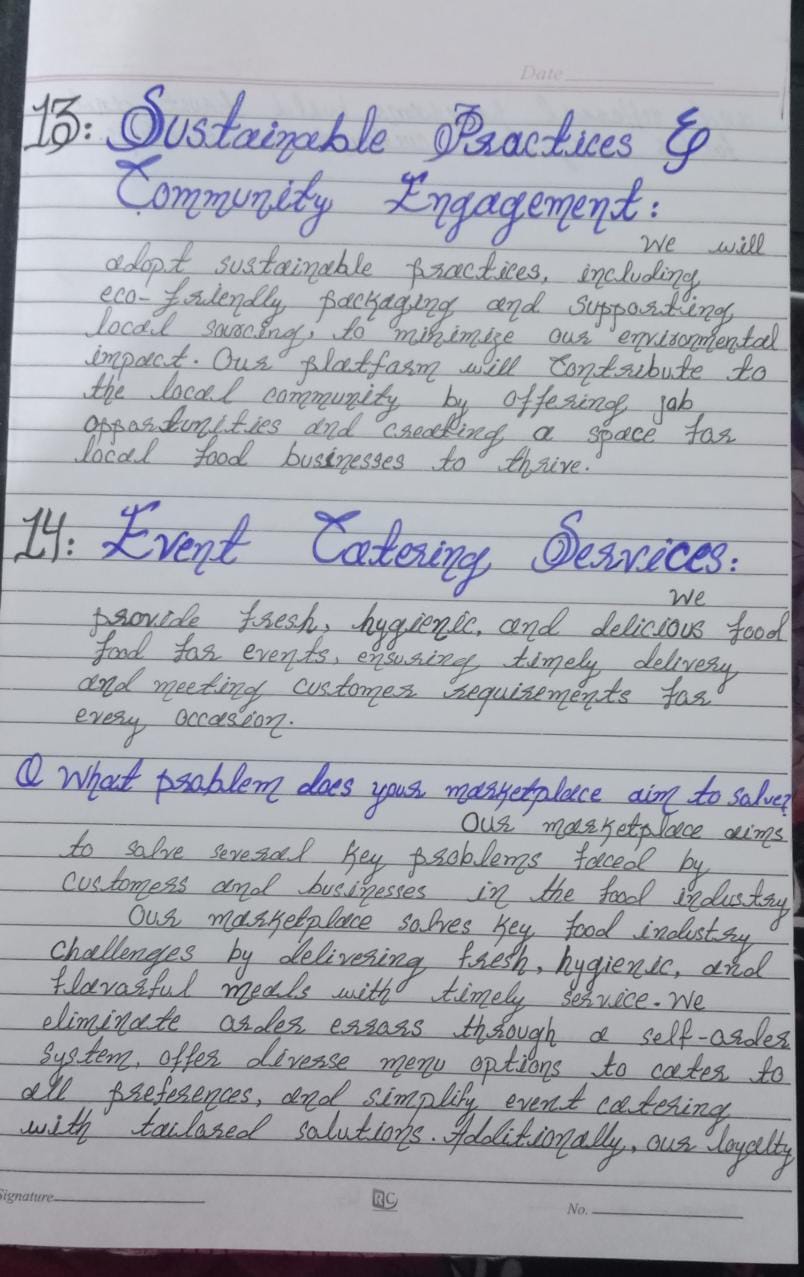 Date
13: Sustainable Practices &
Community Engagement:
We will
adopt sustainable practices, including
eco-friendly packaging and supporting
local sourcing, to minimize our environmental
impact. Our platform will contribute to
the local community by offering job
opportunities and creating a space for
local food businesses to thrive.
14: Event Catering Services:
We
provide fresh, hygienic, and delicious food
food for events, ensuring timely delivery
and meeting customer requirements for
every occasion.
Q What problem does your marketplace aim to solve?
Our marketplace aims
to solve several key problems faced by
customers and businesses in the food industry
Our marketplace solves key food industry
challenges by delivering fresh, hygienic, and
flavorful meals with timely service. We
eliminate order errors through a self-order
system, offer diverse menu options to cater to
all preferences, and simplify event catering
with tailored solutions. Additionally, our loyalty
Signature
RC
No.